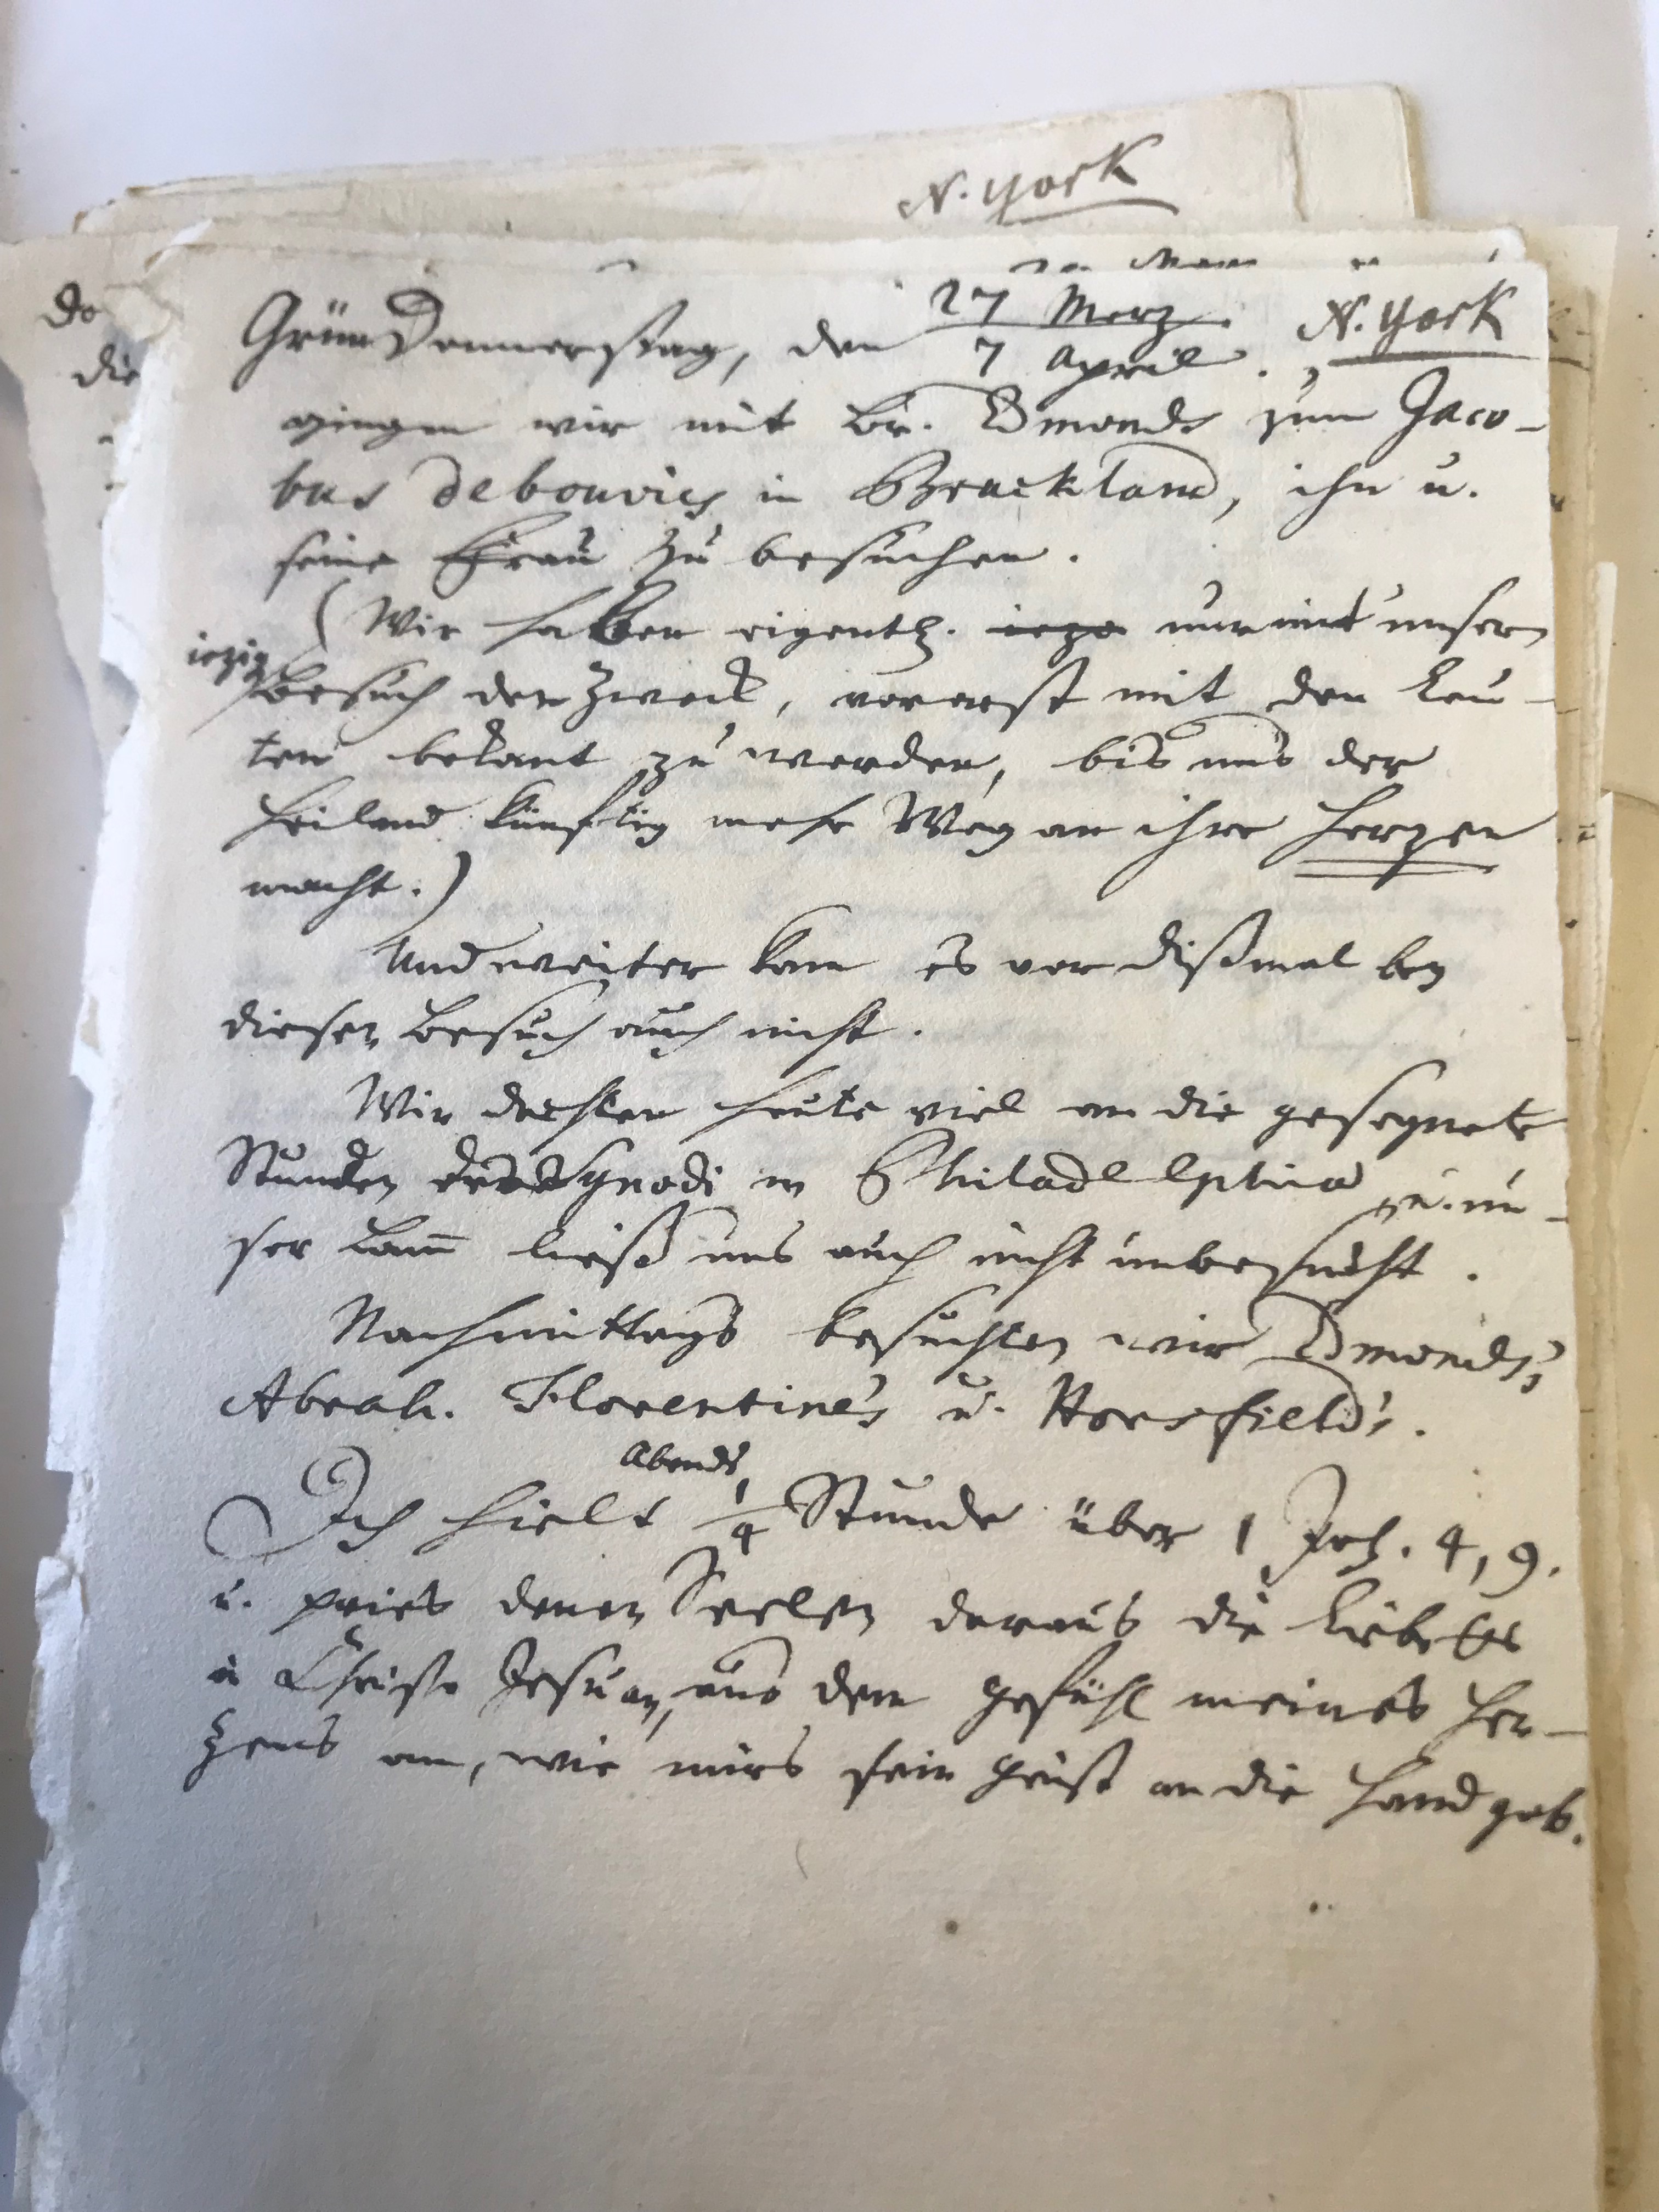 N. York
do
die
Grün Donnerstag, den 27 Merz / 7 April. N. York
gingen wir mit Br. Edmonds zum Jaco-
bus debouvies in Brackland, ihn u.
seine Frau zu besuchen.
(Wir haben eigentl. ieze nur mit unsern
iezig
Besuch den Zweck, vorerst mit den Leu-
ten bekant zu werden, bis uns der
Heiland künftig mehr Weg an ihre Herzen
macht.)
Und weiter kam es vor dißmal bey
diesen Besuch auch nicht.
Wir dachten heute viel an die gesegnete
Stunden Synodi in Philadelphia u. un-
ser Lamm ließ uns auch nicht unbesucht.
Nachmittags besuchten wir Edmonds,
Abrah. Florentine's u. Horsfield's.
Abends
Ich hielt 1/4 Stunde über 1 Joh. 4, 9.
u. pries denen Seelen daraus die Liebe
in Christo Jesu an, aus dem Gefühl meines Her-
zens an, wie mirs sein Geist an die Hand gab.